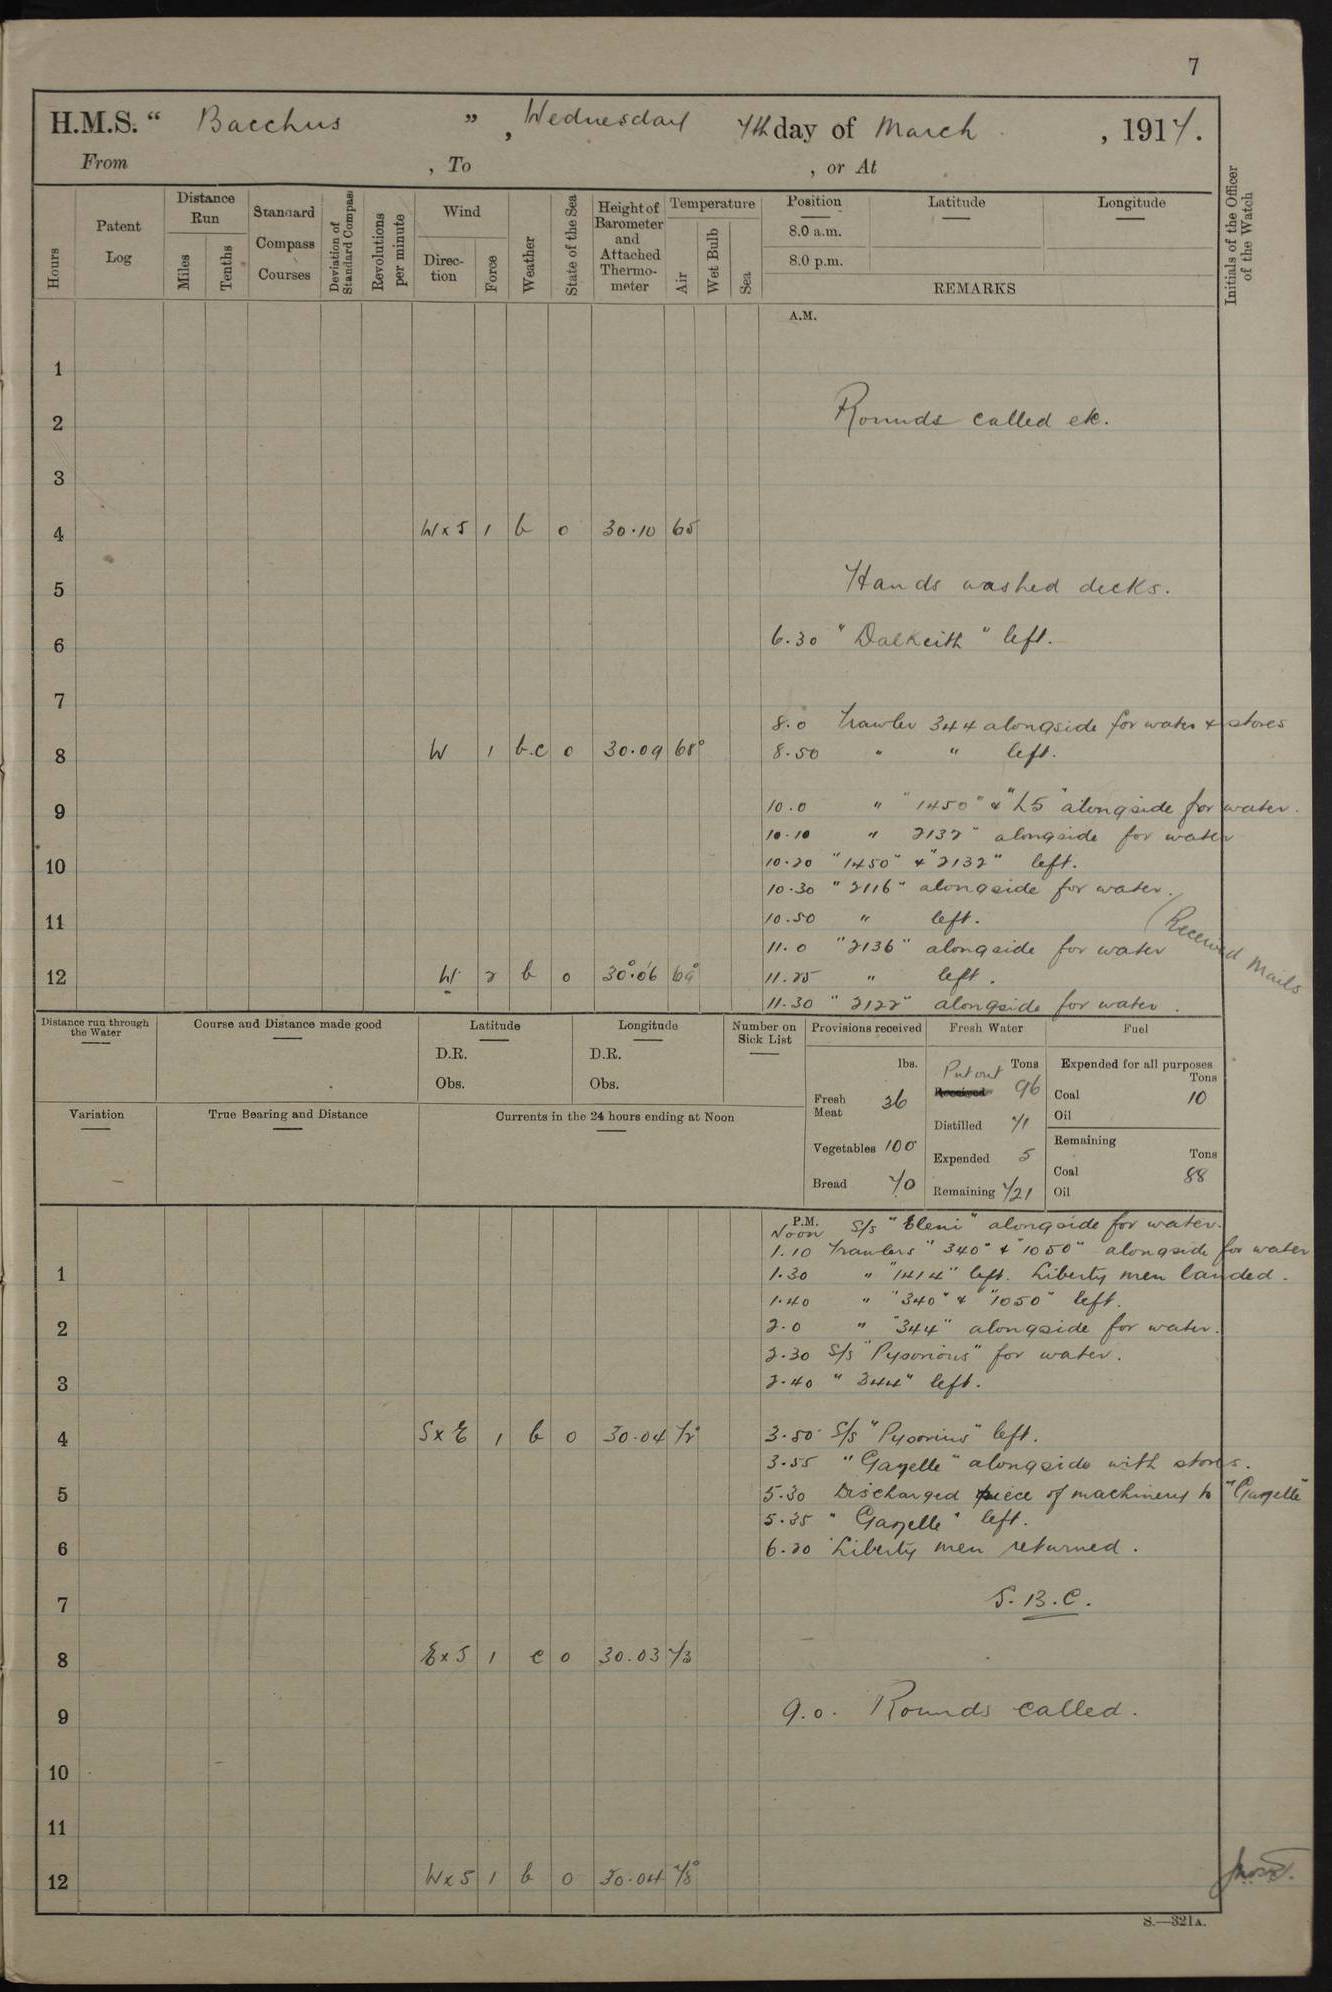 7
H.M.S. “ Bacchus ”, Wednesday 7th day of March , 1917.
From , To , or At
Hours
Patent Log
Distance Run
Miles
Tenths
Standard Compass Courses
Deviation of Standard Compass
Revolutions per minute
Wind
Direction
Force
Weather
State of the Sea
Height of Barometer and Attached Thermometer
Temperature
Air
Wet Bulb
Sea
Position Latitude Longitude
8.0 a.m.
8.0 p.m.
REMARKS
Initials of the Officer of the Watch
A.M.
1
2 Rounds called etc.
3
4 W x S 1 b 0 30.10 65
5 Hands washed decks.
6 6.30 "Dalkeith" left.
7
8.0 Trawler 344 alongside for water & stores
8 W 1 b.c 0 30.09 68° 8.50 " " left.
9 10.0 " "1450" & "L5" alongside for water.
10.10 " 2132" alongside for water
10 10.20 "1450" & "2132" left.
10.30 "2116" alongside for water.
11 10.50 " left. (Received mails
11.0 "2136" alongside for water
12 W 2 b 0 30.06 69° 11.25 " left.
11.30 "2122" alongside for water.
Distance run through the Water
Course and Distance made good
Latitude
D.R.
Obs.
Longitude
D.R.
Obs.
Number on Sick List
Provisions received
lbs.
Fresh Meat 36
Vegetables 100
Bread 70
Fresh Water
Tons
Put out 96
Received
Distilled 71
Expended 5
Remaining 721
Fuel
Expended for all purposes
Tons
Coal 10
Oil
Remaining
Tons
Coal 88
Oil
Variation
True Bearing and Distance
Currents in the 24 hours ending at Noon
P.M.
Noon S/s "Eleni" alongside for water.
1.10 Trawlers "340" & "1050" alongside for water
1 1.30 " "1414" left. Liberty men landed.
1.40 " "340" & "1050" left.
2 2.0 " "344" alongside for water.
2.30 S/s "Pysorious" for water.
3 2.40 "344" left.
4 S x E 1 b 0 30.04 72° 3.50 S/s "Pysorius" left.
3.55 "Gazelle" alongside with stores.
5 5.30 Discharged piece of machinery to "Gazelle"
5.35 "Gazelle" left.
6 6.20 Liberty men returned.
7 S.B.C.
8 E x S 1 c 0 30.03 73
9 9.0. Rounds called.
10
11
12 W x S 1 b 0 30.04 78°
S.—321A.